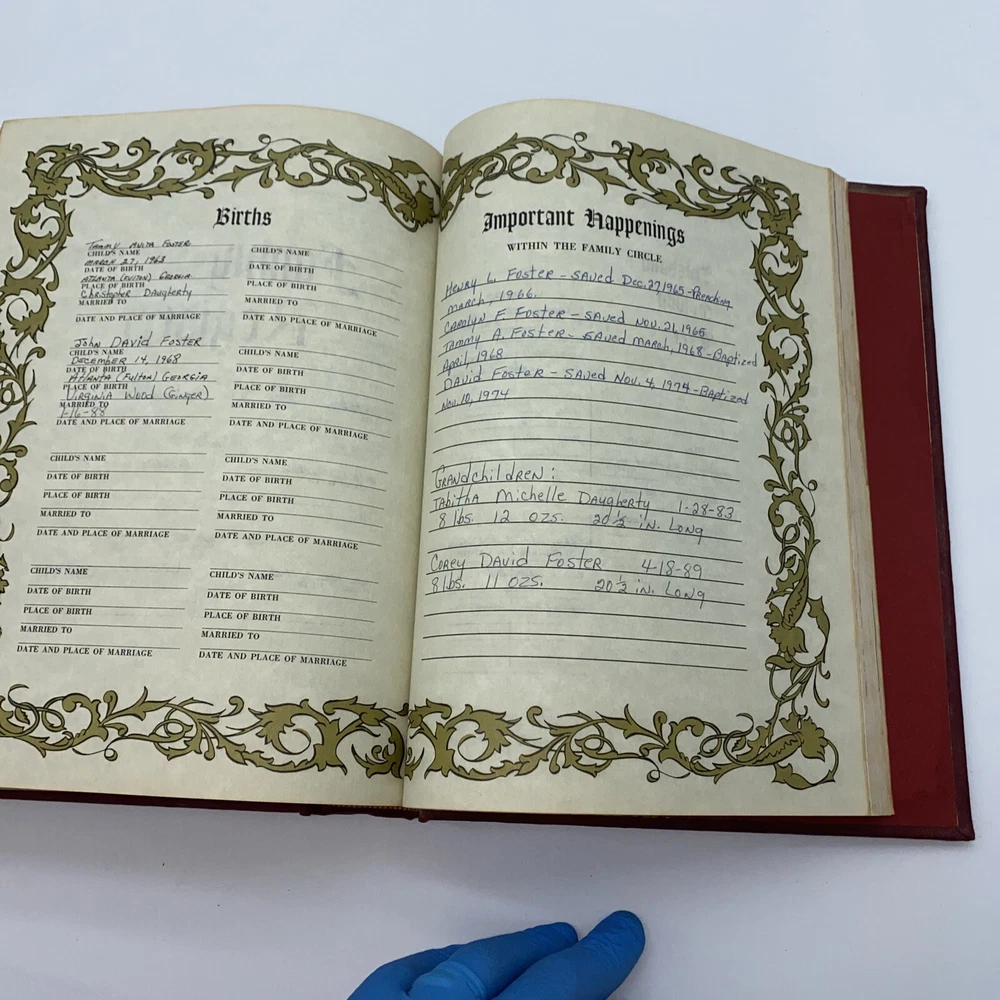 Births
Tammy Anita Foster
CHILD'S NAME
March 27, 1963
DATE OF BIRTH
Atlanta (Fulton) Georgia
PLACE OF BIRTH
Christopher Daugherty
MARRIED TO
DATE AND PLACE OF MARRIAGE
John David Foster
CHILD'S NAME
December 14, 1968
DATE OF BIRTH
Atlanta (Fulton) Georgia
PLACE OF BIRTH
Virginia Wood (Ginger)
MARRIED TO
1-16-88
DATE AND PLACE OF MARRIAGE
CHILD'S NAME
DATE OF BIRTH
PLACE OF BIRTH
MARRIED TO
DATE AND PLACE OF MARRIAGE
CHILD'S NAME
DATE OF BIRTH
PLACE OF BIRTH
MARRIED TO
DATE AND PLACE OF MARRIAGE
CHILD'S NAME
DATE OF BIRTH
PLACE OF BIRTH
MARRIED TO
DATE AND PLACE OF MARRIAGE
CHILD'S NAME
DATE OF BIRTH
PLACE OF BIRTH
MARRIED TO
DATE AND PLACE OF MARRIAGE
CHILD'S NAME
DATE OF BIRTH
PLACE OF BIRTH
MARRIED TO
DATE AND PLACE OF MARRIAGE
CHILD'S NAME
DATE OF BIRTH
PLACE OF BIRTH
MARRIED TO
DATE AND PLACE OF MARRIAGE
Important Happenings
WITHIN THE FAMILY CIRCLE
Henry L. Foster - saved Dec. 27, 1965 - Preaching
March, 1966.
Carolyn F. Foster - saved Nov. 21, 1965
Tammy A. Foster - saved March, 1968 - Baptized
April, 1968
David Foster - saved Nov. 4, 1974 - Baptized
Nov. 10, 1974
Grandchildren:
Tabitha Michelle Daugherty 1-28-83
8 lbs. 12 ozs. 20½ in. Long
Corey David Foster 4-18-89
8 lbs. 11 ozs. 20½ in. Long